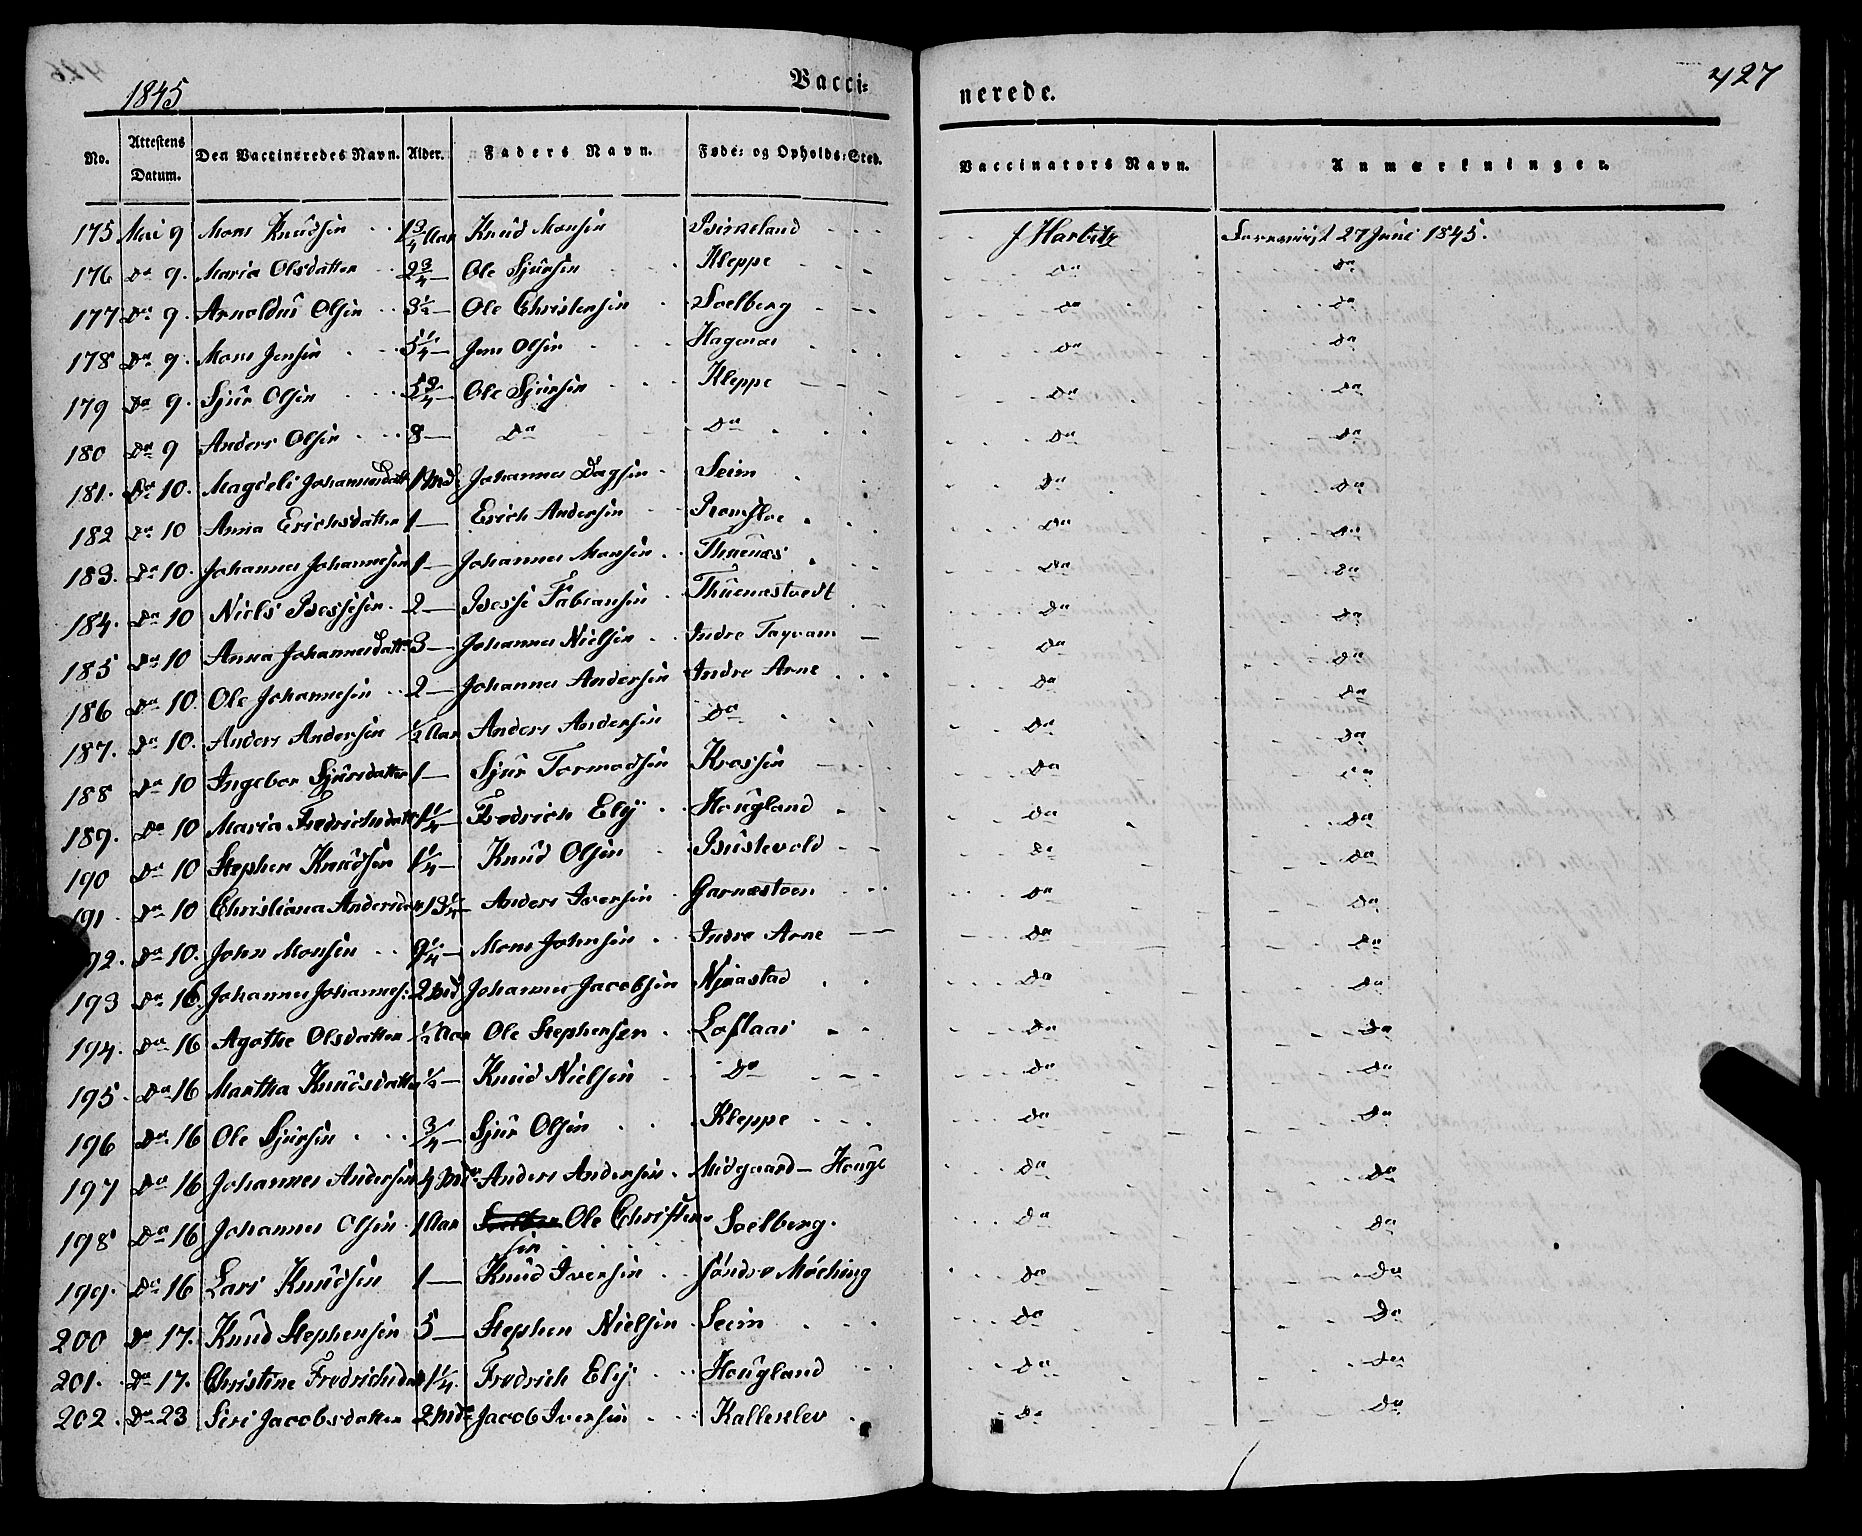 1845 Vacci= nerede. 427
No. Attestens Datum. Den Vaccineredes Navn. Alder. Faders Navn. Føde= og Opholds=Sted. Vaccinators Navn. Anmærkninger.
175 Mai 9 Mons Knudsen 1 3/4 Aar Knud Monsen Birkeland J Harbitz 27 Juni 1845.
176 Do 9. Maria Olsdatter 2 3/4 — Ole Sjursen Kleppe Do Do
177 Do 9. Arnoldus Olsen 3 1/2 — Ole Christensen Soelberg Do Do
178 Do 9. Mons Jensen 5 1/4 — Jens Olsen Hagenæs Do Do
179 Do 9. Sjur Olsen 5 3/4 — Ole Sjursen Kleppe Do Do
180 Do 9 Anders Olsen 8 — Do Do Do Do
181. Do 10. Magdeli Johannesdatt 1 Md Johannes Dagsen Seim Do Do
182 Do 10 Anna Erichsdatter 1 — Erich Andersen Romsloe Do Do
183. Do 10. Johannes Johannesen 1 — Johannes Monsen Thuenæs Do Do
184. Do 10 Niels Bessesen 2 — Besse Fabiansen Thuenæstvedt Do Do
185 Do 10 Anna Johannesdatter 3 — Johannes Nielsen Indre Do Do
186 Do 10. Ole Johannesen 2 — Johannes Andersen Indre Arne Do Do
187. Do 10. Anders Andersen 1/2 Aar Anders Andersen Do Do Do
188 Do 10 Ingebor Sjursdatter 1 — Sjur Tormodsen Krossen Do Do
189. Do 10 Maria Fredrichsdatt 1 1/4 — Fredrich Elij Hougland Do Do
190 Do 10 Stephen Knudsen 1 1/4 — Knud Olsen Bustevold Do Do
191 Do 10 Christiana Andersdr 13 1/4 — Anders Iversen Garnæstøen Do Do
92. Do 10. John Monsen 9 1/4 — Mons Johnsen Indre Arne — Do Do
193 Do 16. Johannes Johannes: 2 Md Johannes Jacobsen Njaastad Do Do
194. Do 16 Agathe Olsdatter 1/2 Aar Ole Stephensen Loflaas Do Do
195 Do 16 Martha Knudsdatter 1/2 — Knud Nielsen Do Do Do
196 Do 16 Ole Sjursen 3/4 — Sjur Olsen Kleppe Do Do
197 Do 16 Johannes Andersen 4 Mdr Anders Andersen Midgaard — Hougl Do Do
198 Do 16 Johannes Olsen 1 Aar Ole Christen Soelberg. Do Do
sen
199. Do 16 Lars Knudsen 1 — Knud Iversen søndre Møching Do Do
200 Do 17. Knud Stephensen 5 — Stephen Nielsen Seim Do Do
201. Do 17. Christine Fredrichsda 1 1/4 Fredrich Elij Hougland Do Do
202. Do 23 Siri Jacobsdatter 2 Mdr Jacob Iversen Kallestev Do Do